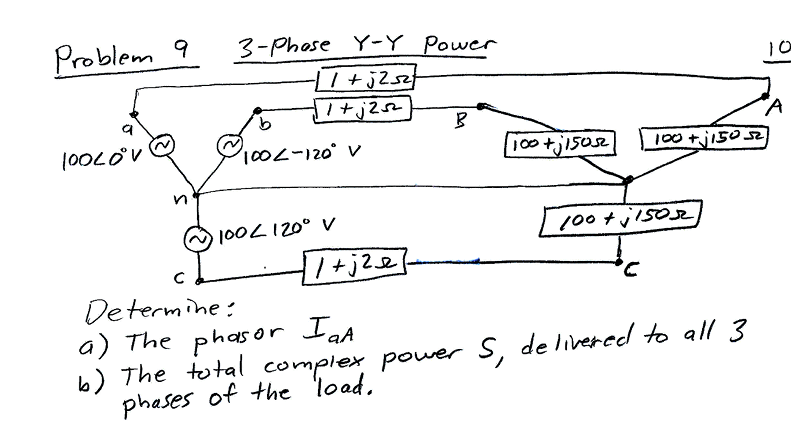 Problem 9 3-Phase Y-Y Power 10
1 + j2Ω
1 + j2Ω
a b B A
100∠0° V 100∠-120° V 100 + j150Ω 100 + j150Ω
n
100∠120° V 100 + j150Ω
c 1 + j2Ω C
Determine:
a) The phasor IaA
b) The total complex power S, delivered to all 3
phases of the load.